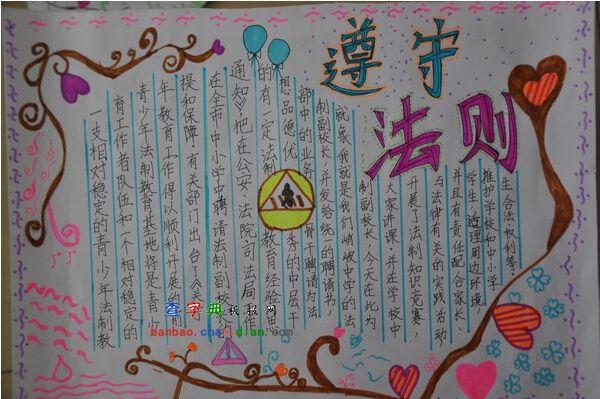 遵守
法则
一支相对稳定的青少年法制教
育工作者队伍和一个相对稳定的
青少年法制教育基地将是青少
年教育工作得以顺利开展的前
提和保障，有关部门出台了《关于
在全市中小学中聘请法制副校
通知》把在公安、法院、司法局工作
的有一定法制教育经验、思
想品德优秀的中层干
部中的业务骨干聘请为法
制副校长，并发给统一的聘请书，
就象我就是我们峭峻中学的法
制副校长，今天在此为
大家讲课，并在学校中
开展了法制知识竞赛，
与法律有关的实践活动、
并且有责任配合家长、
学生、治理周边环境，
维护学校和中小学
生合法权利等
查字典板报网
banbao.chazidian.com